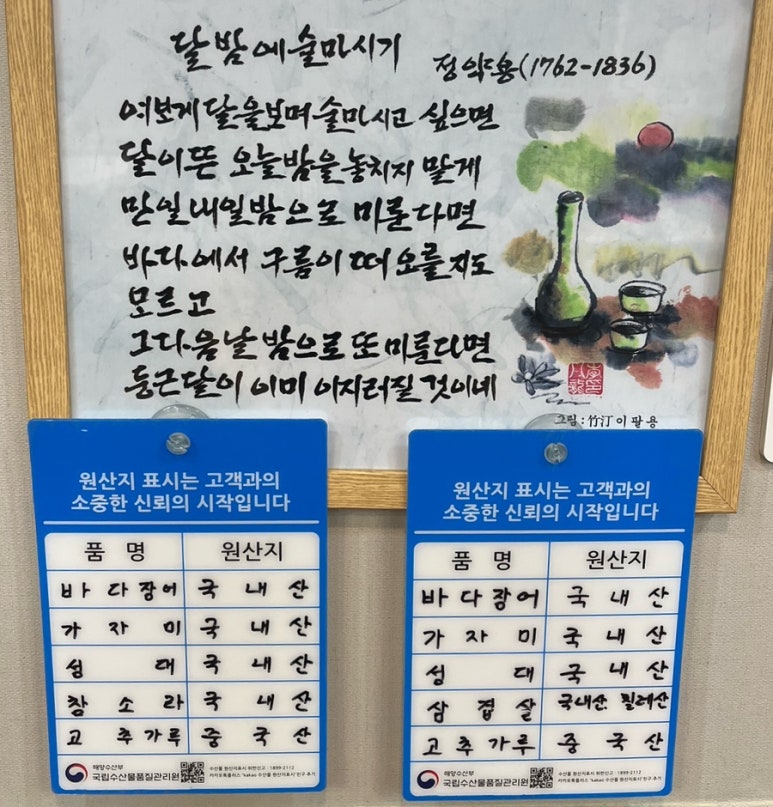 달밤에 술마시기
정약용(1762-1836)
여보게 달을 보며 술마시고 싶으면
달이 뜬 오늘밤을 놓치지 말게
만일 내일밤으로 미룬다면
바다에서 구름이 떠 오를지도
모르고
그 다음날 밤으로 또 미룬다면
둥근달이 이미 이지러질 것이네
그림:竹汀 이팔용
원산지 표시는 고객과의
소중한 신뢰의 시작입니다
품 명 원산지
바다장어 국내산
가자미 국내산
성대 국내산
참소라 국내산
고추가루 중국산
해양수산부
국립수산물품질관리원
수산물 원산지표시 위반신고 : 1899-2112
카카오톡플러스 "kakao 수산물 원산지표시" 친구 추가
원산지 표시는 고객과의
소중한 신뢰의 시작입니다
품 명 원산지
바다장어 국내산
가자미 국내산
성대 국내산
삼겹살 국내산 칠레산
고추가루 중국산
해양수산부
국립수산물품질관리원
수산물 원산지표시 위반신고 : 1899-2112
카카오톡플러스 "kakao 수산물 원산지표시" 친구 추가